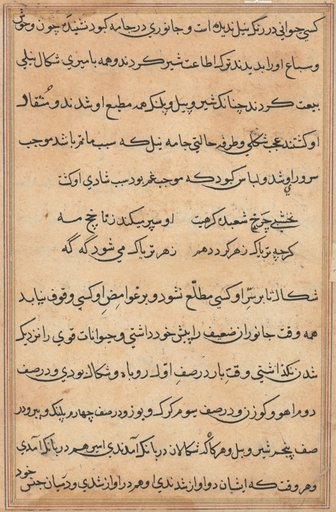 کسی حیوانی در رنک نیل ندیده است و جانوری در جامه کبود نشنیده چون وحوش
و سباع او را بدیدند ترک اطاعت شیر کردند و همه بامیری شکال نیلی
بیعت کردند چنانک شیر و پیل و پلنک همه مطیع او شدند و شغال
او کشتند عجب شکلی و طرفه حالتی جامه نیل که سبب ماتم باشد موجب
سرور او شد و لباس کبود که موجب غم بود سبب شادی او کشت
نخشبی چرخ شعبده کرهیست او سپر میکند زنا نخ مه
کرچه تریاک زهر کردد هم زهر تریاک می شود که که
شکال تا بر سر او کسی مطلع نشود و بر غوامض او کسی وقوف نیابد
همه وقت جانوران ضعیف را پیش خود داشتی و حیوانات قوی را نزدیک
شدن نکذاشتی وقت بار در صف اول روباه و شکال بودی و در صف
دوم اهو و کوزن و در صف سوم کرک و یوز و در صف چهارم پلنک و ببر و در
صف پنجم شیر و پیل و هر کاه که شکالان در بانک آمدندی او نیز هم در بانک آمدی
و هر وقت که ایشان در آواز شدندی او هم در آواز شدی و در میان جنس خود